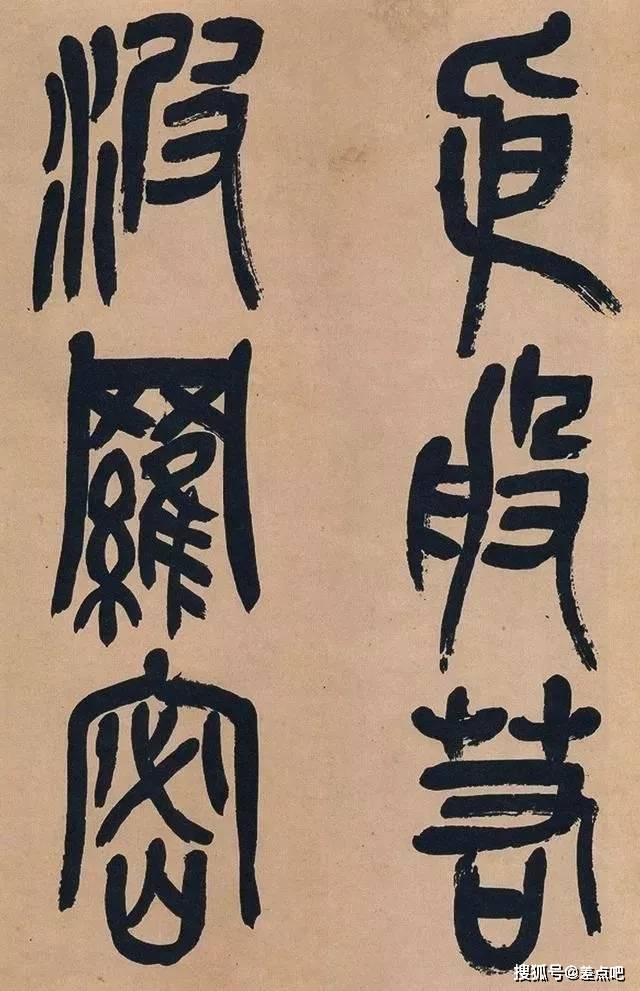 眞般若
波羅密
搜狐号@差点吧